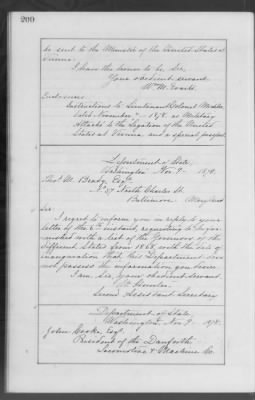 200
be sent to the Minister of the United States at
Vienna.
I have the honor to be, Sir,
Your obedient servant
Wm M. Evarts.
Enclosures.
Instructions to Lieutenant Colonel
dated November 9 1878. as Military
Attaché to the Legation of the United
States at Vienna, and a special passport.
Department of State,
Washington Nov. 9 - 1878.
Thos. M. Brady, Esq.
No. 37 North Charles St.
Baltimore Maryland
Sir:
I regret to inform you in reply to your
letter of the 6th instant, requesting to be fur-
nished with a list of the Governors of the
different States from 1868, with the date of
inauguration that this Department does
not possess the information you desire.
I am, Sir, your obedient servant.
Second Assistant Secretary
Department of State,
Washington Nov. 9 - 1878.
John Cooke, Esq.
President of the Danforth
Locomotive & Machine Co.